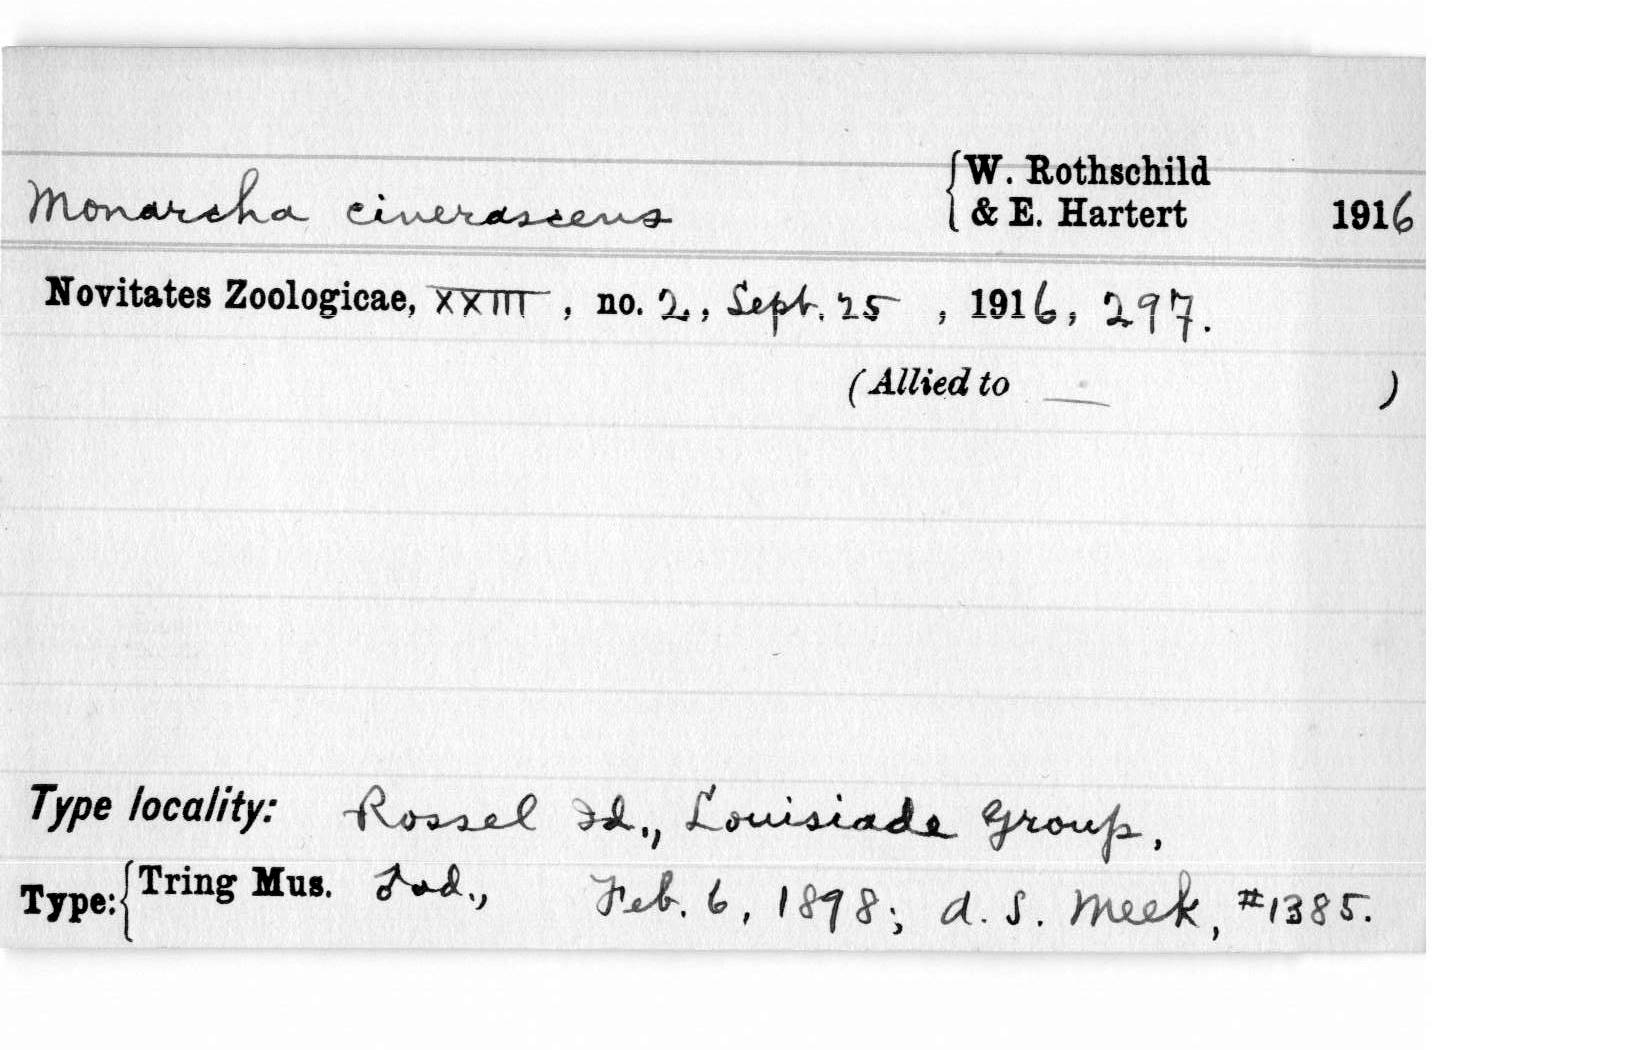 Monarcha cinerascens { W. Rothschild & E. Hartert 1916
Novitates Zoologicae, XXIII, no. 2, Sept. 25, 1916, 297.
(Allied to — )
Type locality: Rossel Id., Louisiade Group,
Type: { Tring Mus. ♂ ad., Feb. 6, 1898; A. S. Meek, #1385.